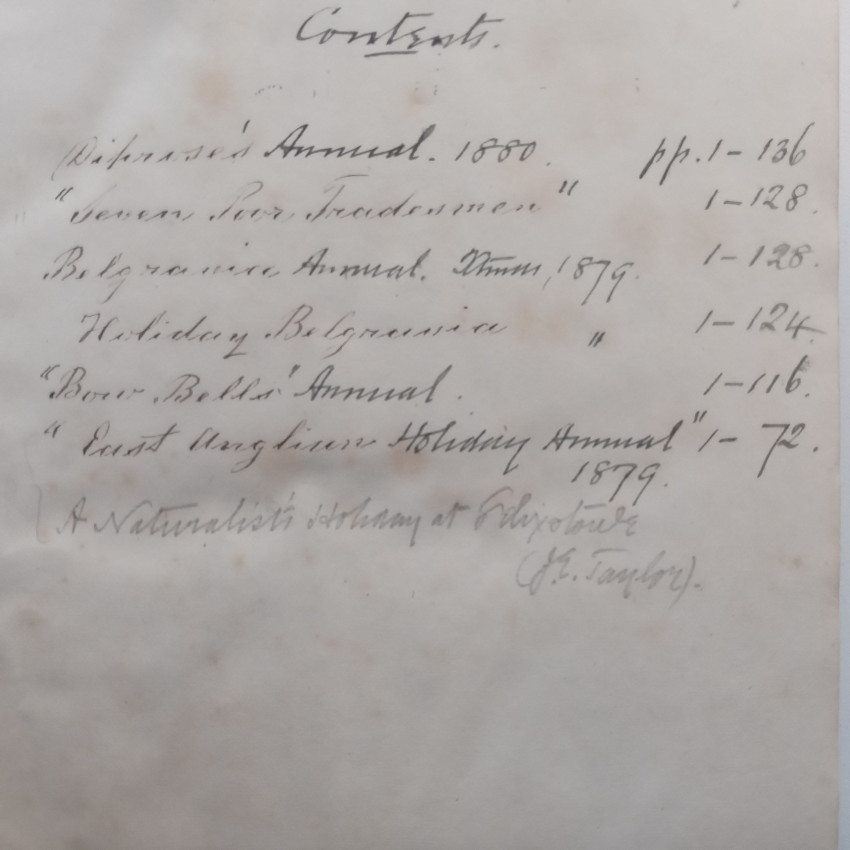 Contents.
Diprose's Annual. 1880. pp. 1-136
"Seven Poor Tradesmen" 1-128.
Belgravia Annual. Xmas, 1879. 1-128.
Holiday Belgravia " 1-124.
"Bow Bells' Annual. 1-116.
" East Anglian Holiday Annual" 1-72.
1879.
A Naturalist's Holiday at Felixstowe
(J.E. Taylor).